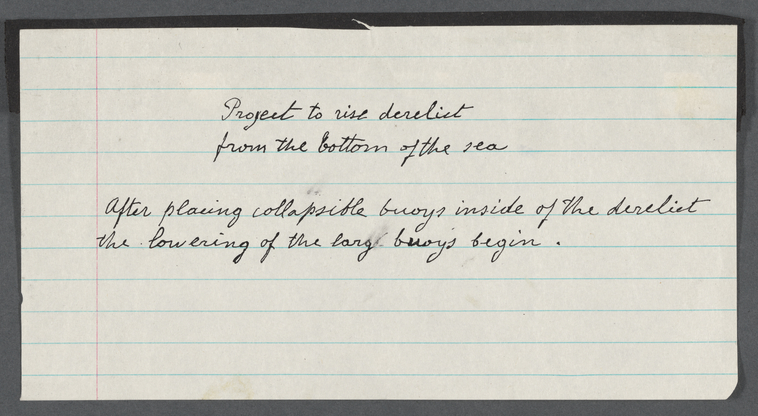 Project to rise derelict
from the bottom of the sea
After placing collapsible buoys inside of the derelict
the lowering of the larg buoys begin.